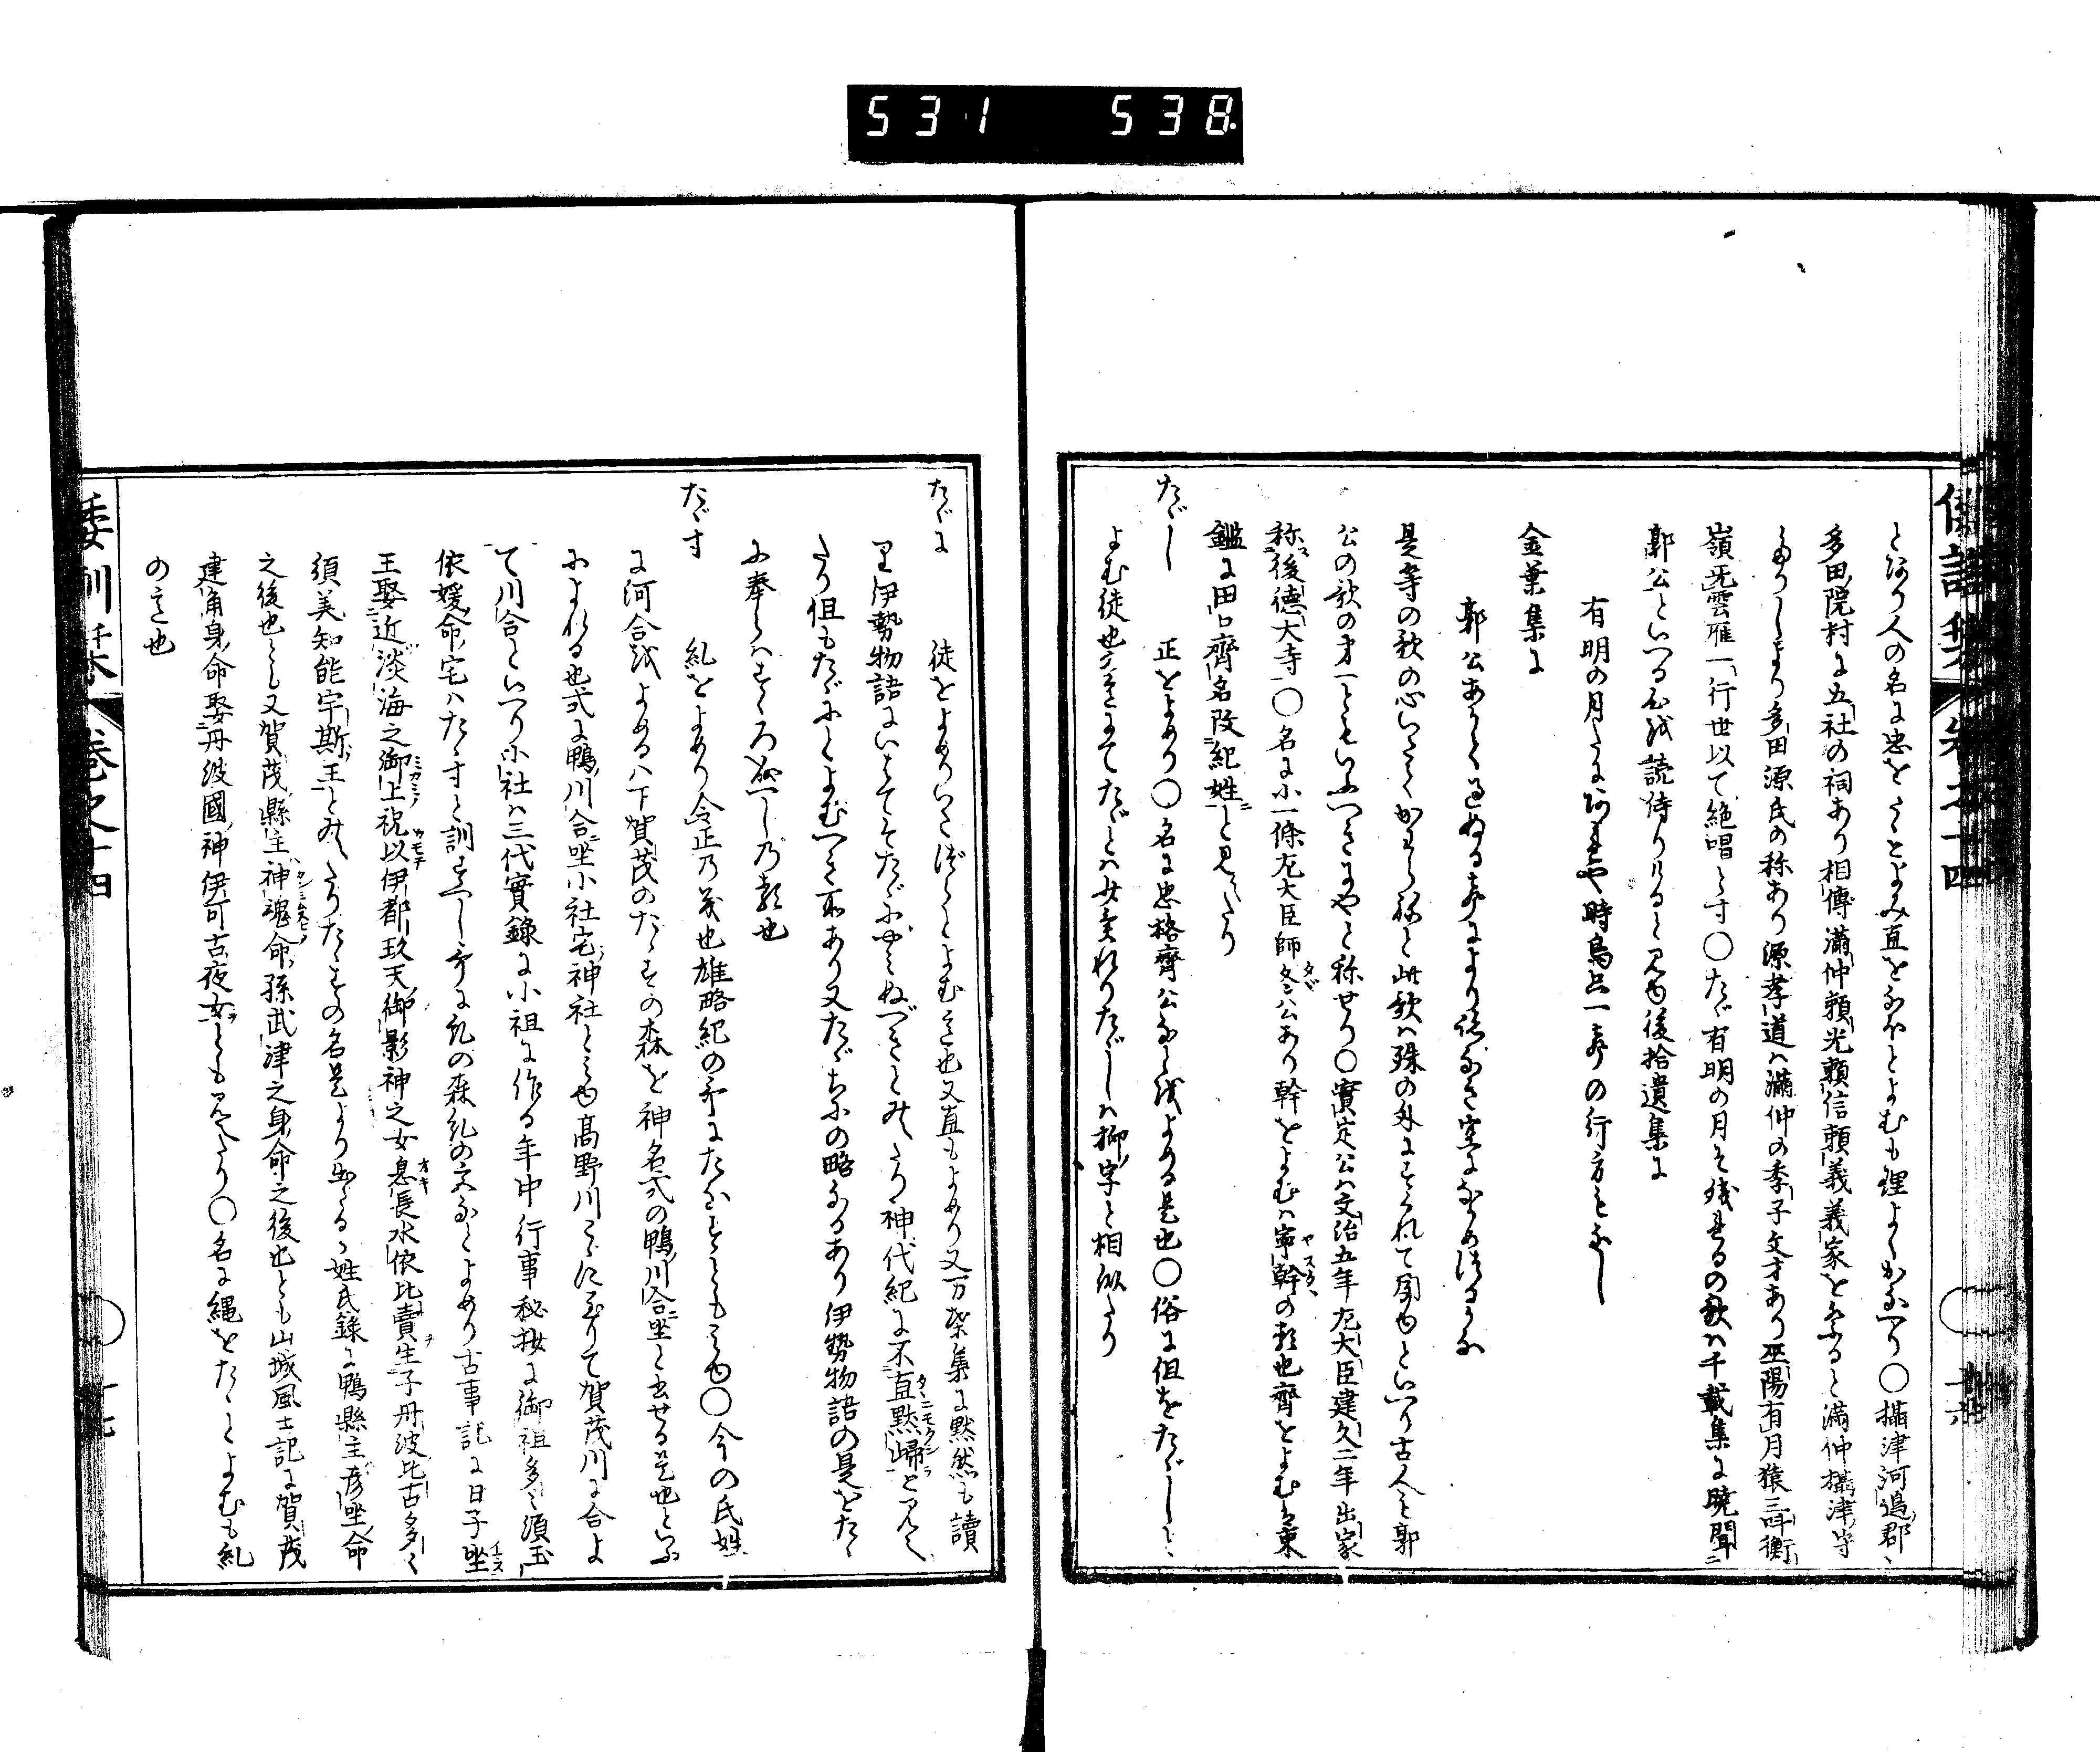 531 538
とあり人の名に忠をたゝとよみ直をなほとよむも理よくかなへり〇攝津河邉郡
多田院村に五社の祠あり相傳滿仲頼光頼信頼義義家を祭ると滿仲攝津守
たりしより多田源氏の称あり源孝道ハ滿仲の季子文才あり巫陽有月猿三叫衡
嶺无雲雁一行世以て絶唱とす〇たゞ有明の月そ殘れるの歌ハ千載集に曉聞
郭公といへるを読侍りけると見ゆ後拾遺集に
有明の月たにあれや時鳥只一声の行方も
金葉集に
郭公あかて過ぬる声により跡なき空になかめつるかな
是等の歌の心いたくかはらねと此歌ハ殊の外にすくれて聞ゆといへり古人も郭
公の歌の才一ともいふへきにやと称せり〇實定公ハ文治五年左大臣建久二年出家
称後德大寺〇名に小一條左大臣師尹公あり幹をよむハ寧幹の類也齊をよむハ東
鑑に田口齊名改紀姓と見えたり
たゞし 正をよめり〇名に忠格齊公なとをよめる是也〇俗に但をたゞしと
よむ徒也の意にてたゞとハ女交れりたゞしハ抑字と相似たり
たゞに 徒をよめりいたづらとよむ意也又直もよめり又万葉集に黙然も讀
り伊勢物語にいとてそたゞにやみぬべきとみえたり神代紀に不直黙歸と見え
たり但もたゞにとよむへき所あり又たゞちにの略なるあり伊勢物語の是をたゝ
に奉らハすゝろなるへし乃類也
たゞす 糺をよめり令正乃義也雄略紀の哥にたゞすとも見ゆ〇今の氏姓
に河合をよめるハ下賀茂のたゝすの森を神名式の鴨川合坐と書せる是也といふ
によれる也式に鴨川合坐小社宅神社と見ゆ高野川こゝに至りて賀茂川に合よ
て川合といへり小社ハ三代實録に小祖に作る年中行事秘抄に御祖多々須玉
依媛命宅ハたゝすと訓すへし哥に糺の森糺の宮なとよめり古事記に日子坐
王娶近淡海之御上祝以伊都玖天御影神之女息長水依比賣生子丹波比古多々
須美知能宇斯王とみえたりたゝすの名是より出たる歟姓氏録に鴨縣主彦坐命
之後也とし又賀茂縣主神魂命孫武津之身命之後也とも山城風土記に賀茂
建角身命娶丹波國神伊可古夜女とも見えたり〇名に縄をたゝとよむも糺
の意也
倭訓栞 卷之十四